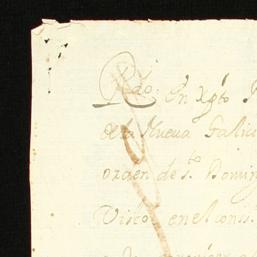 Rdo. en Xpto
de la Nueua Galici
orden de sto. Doming
Visto en el cons.